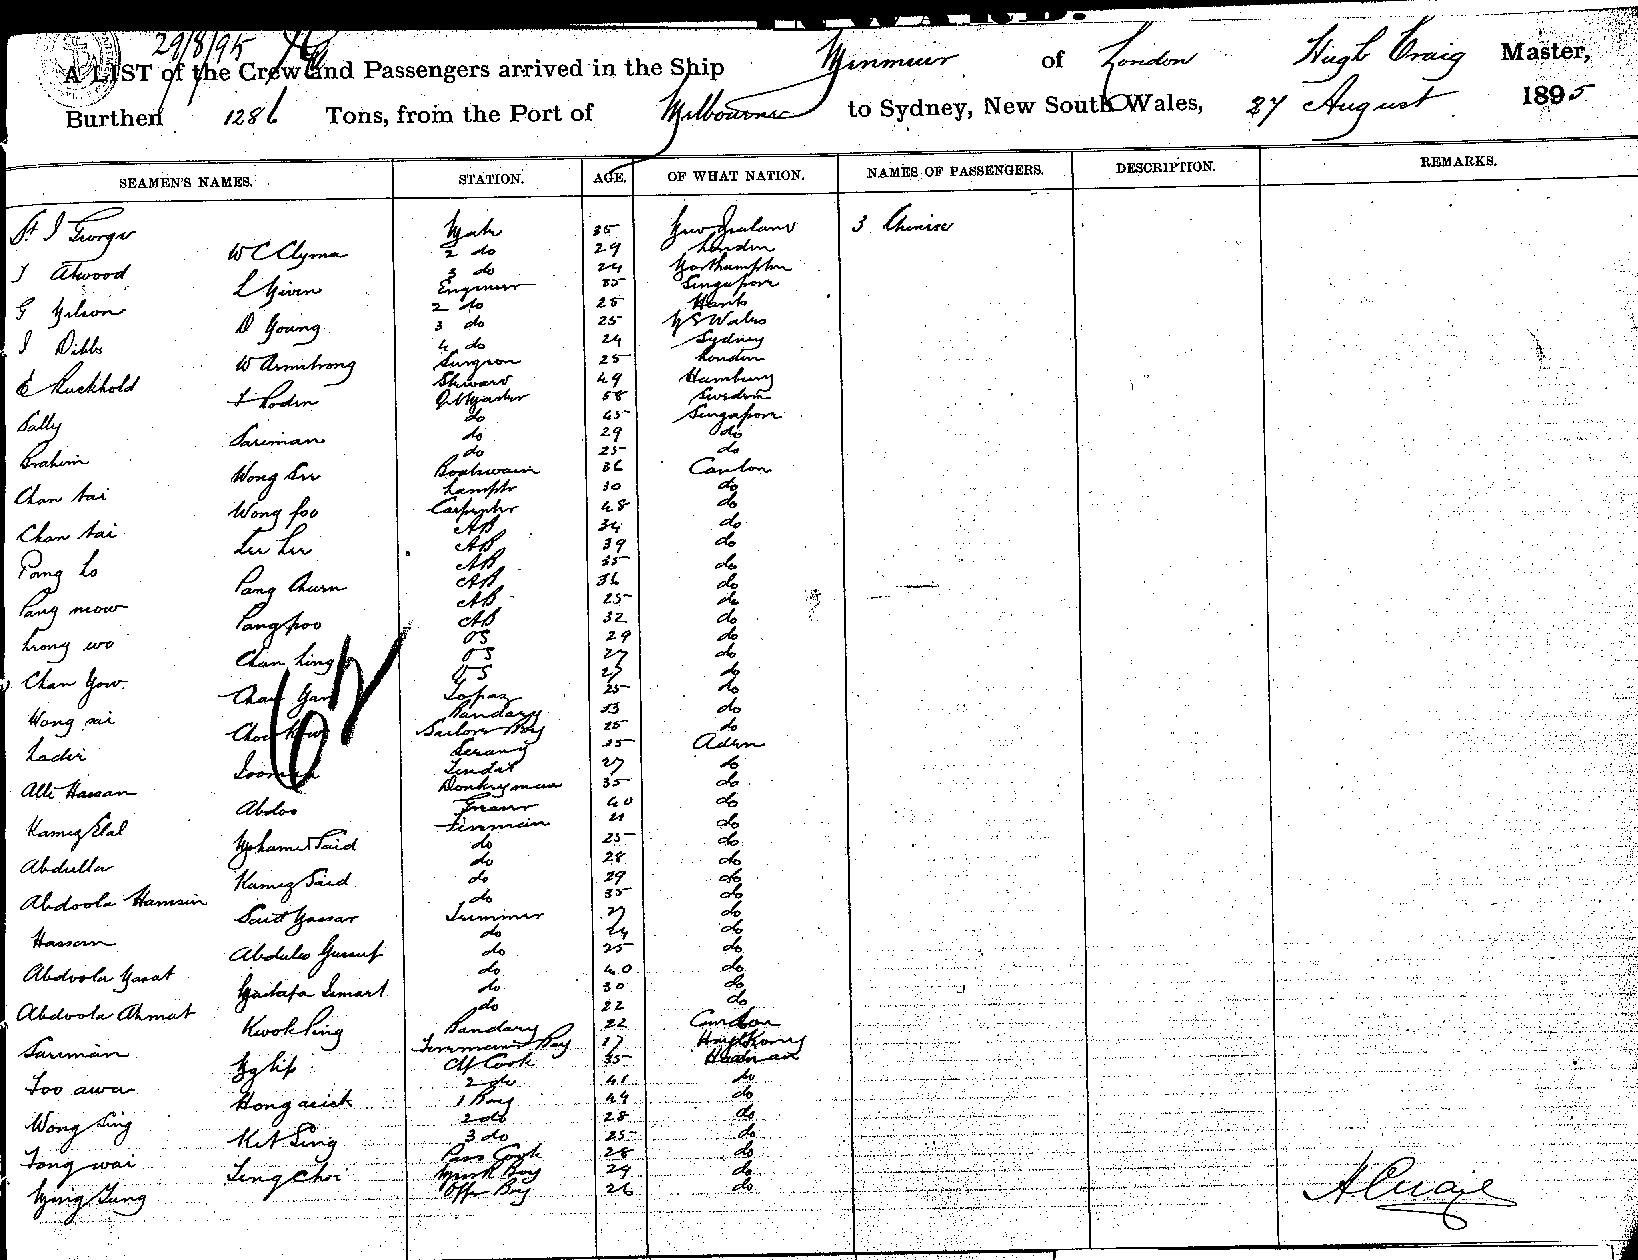 29/8/95
A LIST of the Crew and Passengers arrived in the Ship Menmuir of London Hugh Craig Master,
Burthen 1286 Tons, from the Port of Melbourne to Sydney, New South Wales, 27 August 1895
SEAMEN'S NAMES. STATION. AGE. OF WHAT NATION. NAMES OF PASSENGERS. DESCRIPTION. REMARKS.
St J George Mate 35 New Zealand 3 Chinese
W C Clyma 2 do 29 London
J Atwood 3 do 24 Northampton
L Given Engineer 35 Singapore
G Nelson 2 do 25 Hants
D Young 3 do 25 N S Wales
J Dibbs 4 do 24 Sydney
W Armstrong Surgeon 25 London
E Ruckhold Steward 49 Hamburg
J Roden Q Master 58 Sweden
Sally do 45 Singapore
Sariman do 29 do
Brahim do 25 do
Wong Su Boatswain 36 Canton
Chan tai Lamptr 30 do
Wong foo Carpenter 48 do
Chan tai AB 34 do
Lee Lee AB 39 do
Pang Lo AB 35 do
Pang Churn AB 36 do
Pang mow AB 25 do
Pang poo AB 32 do
wo OS 29 do
Chan Ling OS 27 do
Chan Yow OS 27 do
Chan Topaz 25 do
Wong sai Bandary 33 do
Sailors Boy 25 do
Lader Serang 35 Aden
Tindal 27 do
Alli Hassan Donkeyman 35 do
Abdoo Greaser 40 do
Fireman 21 do
Mohamet Said do 25 do
Abdulla do 28 do
Hameg Said do 29 do
Abdoola Hamsin do 35 do
Said Nassar Trimmer 27 do
Hassan do 24 do
Abdulla do 25 do
Abdoola do 40 do
do 30 do
Abdoola Ahmat do 22 do
Kwok Ping Bandary 22 Canton
Sariman Firemans Boy 17 Hong Kong
Ch Cook 35 Hainan
Foo awa 2 do 41 do
1 Boy 44 do
Wong Sing 2 do 28 do
Ket Sing 3 do 25 do
Tong wai Pass Cook 28 do
Teng Choi Boy 24 do
Boy 26 do
H Craig